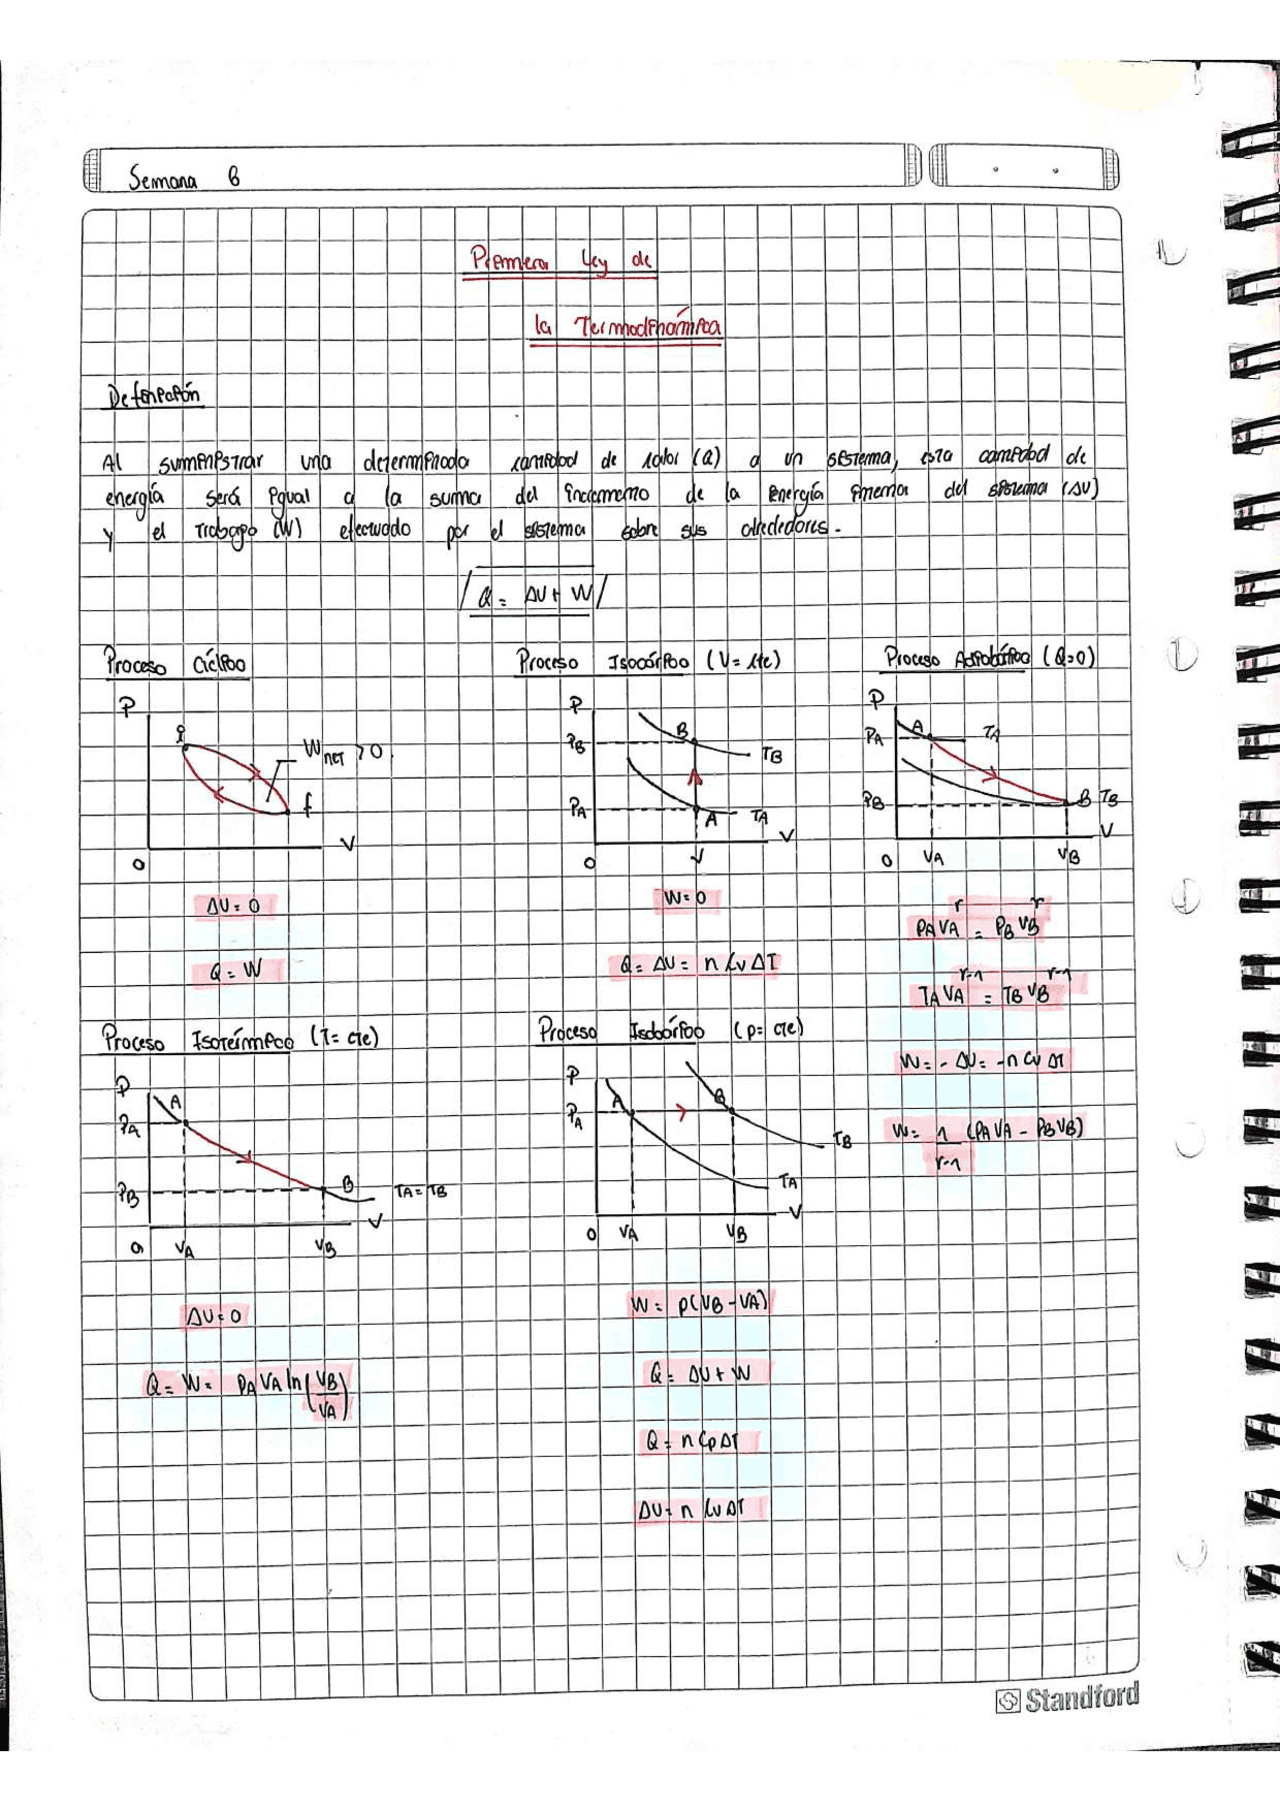 Semana 6
Primera Ley de
la Termodinámica
Definición
Al suministrar una determinada cantidad de calor (Q) a un sistema, esta cantidad de
energía será igual a la suma del incremento de la energía interna del sistema (ΔU)
y el trabajo (W) efectuado por el sistema sobre sus alrededores.
Q = ΔU + W
Proceso Cíclico
P
i
W_NET > 0
f
V
0
ΔU = 0
Q = W
Proceso Isocórico (V = cte)
P
P_B
B
T_B
P_A
A
T_A
V
0
V
W = 0
Q = ΔU = n Cv ΔT
Proceso Adiabático (Q=0)
P
P_A
A
T_A
P_B
B T_B
V
0 V_A V_B
P_A V_A^r = P_B V_B^r
T_A V_A^r-1 = T_B V_B^r-1
W = - ΔU = -n Cv ΔT
W = 1/r-1 (P_A V_A - P_B V_B)
Proceso Isotérmico (T = cte)
P
A
P_A
P_B
B
T_A = T_B
V
0 V_A V_B
ΔU = 0
Q = W = P_A V_A ln (V_B/V_A)
Proceso Isobárico (p = cte)
P
P_A
A
B
T_B
T_A
V
0 V_A V_B
W = p(V_B - V_A)
Q = ΔU + W
Q = n Cp ΔT
ΔU = n Cv ΔT
Standford